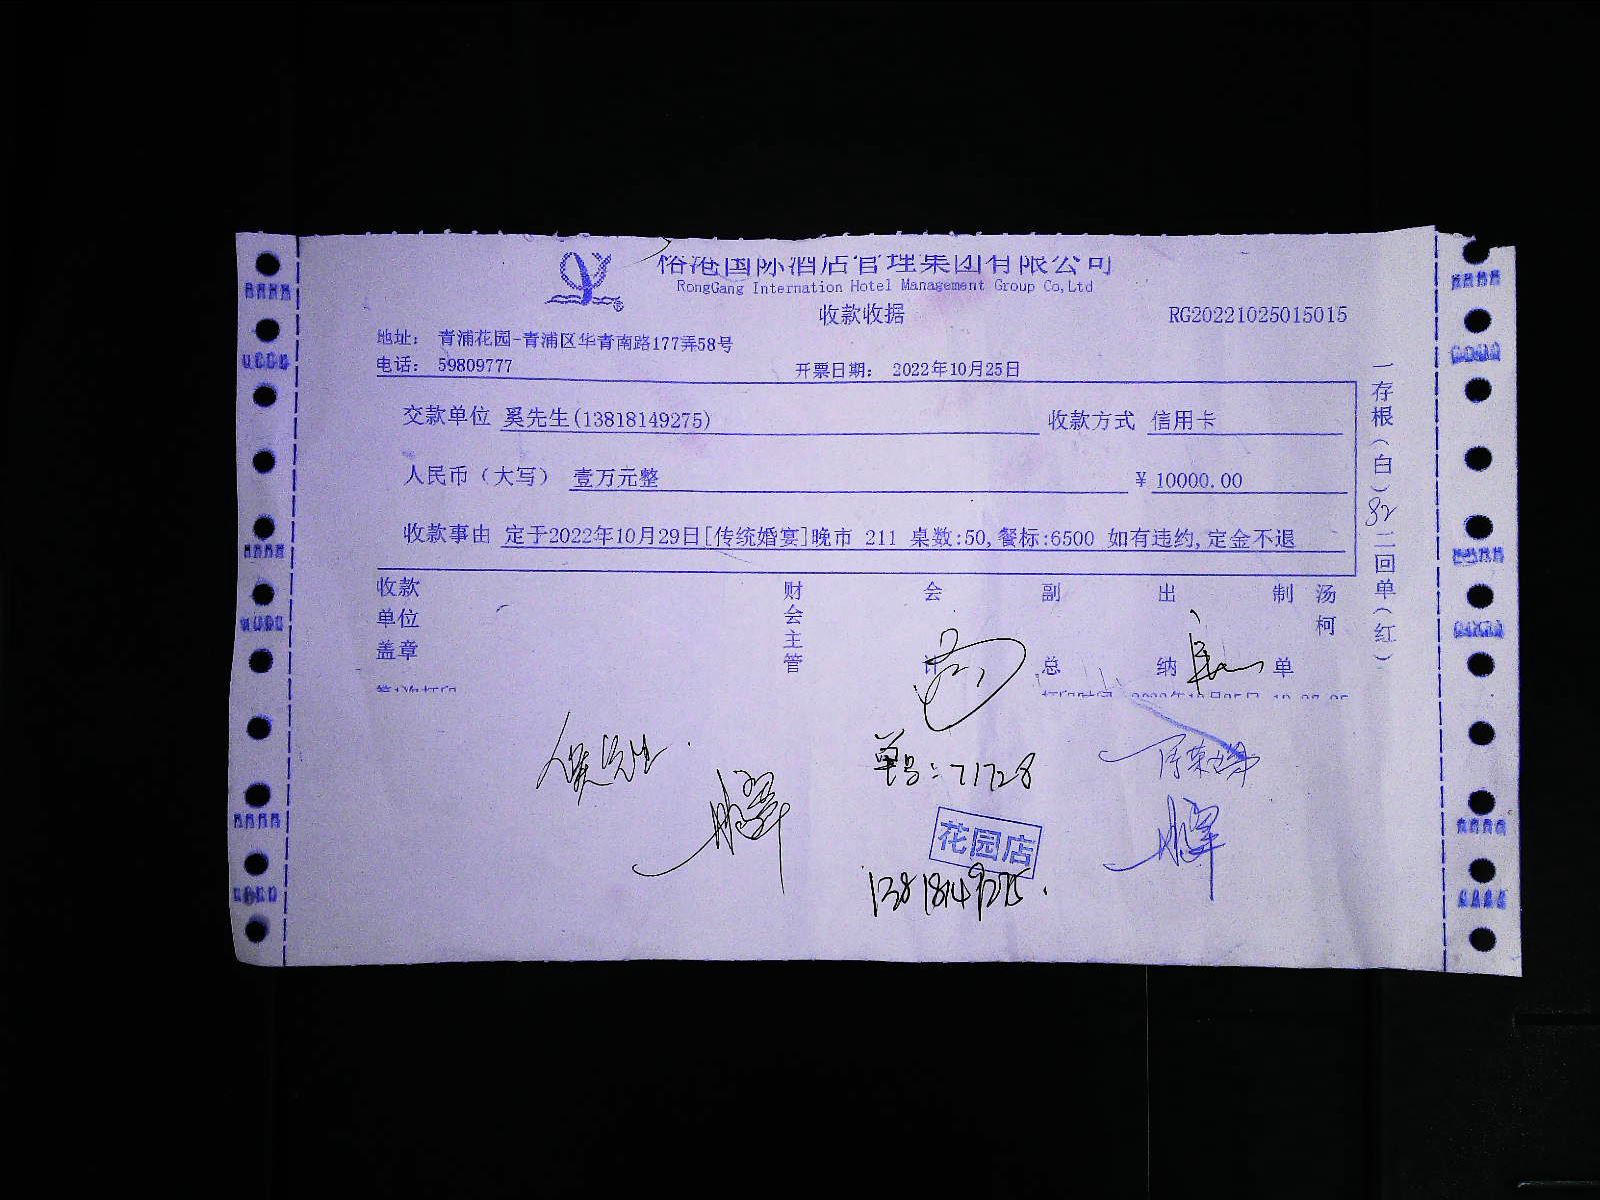 榕港国际酒店管理集团有限公司
RongGang Internation Hotel Management Group Co,Ltd
收款收据
RG20221025015015
地址： 青浦花园-青浦区华青南路177弄58号
电话： 59809777
开票日期： 2022年10月25日
交款单位 奚先生(13818149275)
收款方式 信用卡
人民币（大写） 壹万元整
￥ 10000.00
收款事由 定于2022年10月29日[传统婚宴]晚市 211 桌数:50,餐标:6500 如有违约,定金不退
一存根(白) 82 二回单(红)
收款单位盖章
财会主管
会计
副总
出纳
制单
汤柯
第1次打印
单号：71728
花园店
13818149275.